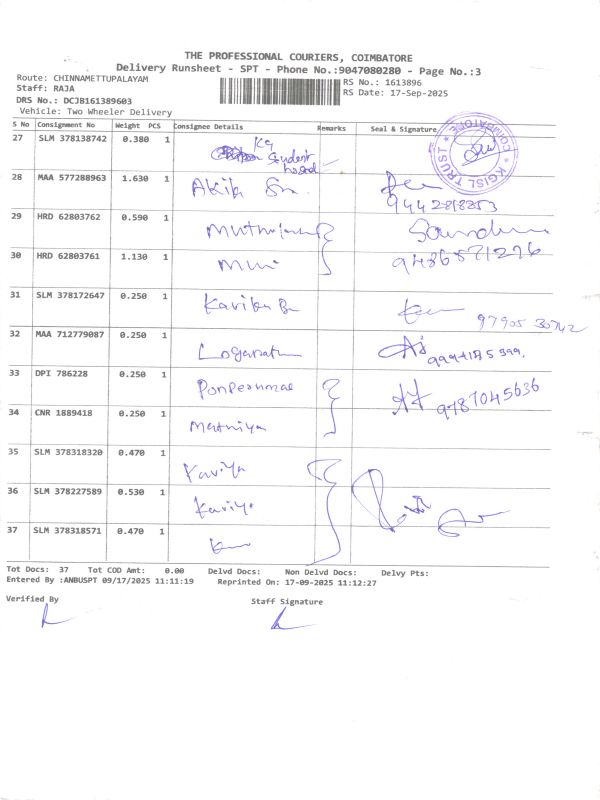 THE PROFESSIONAL COURIERS, COIMBATORE
Delivery Runsheet - SPT - Phone No.:9047080280 - Page No.:3
Route: CHINNAMETTUPALAYAM RS No.: 1613896
Staff: RAJA RS Date: 17-Sep-2025
DRS No.: DCJB161389603
Vehicle: Two Wheeler Delivery
S No Consignment No Weight PCS Consignee Details Remarks Seal & Signature
27 SLM 378138742 0.380 1 KG Student hostel
COIMBATORE * KGISL TRUST *
28 MAA 577288963 1.630 1 Akila Sr.
9442818253
29 HRD 62803762 0.590 1
30 HRD 62803761 1.130 1 9486571276
31 SLM 378172647 0.250 1 97905 30742
32 MAA 712779087 0.250 1 Loganath
33 DPI 786228 0.250 1 9787045636
34 CNR 1889418 0.250 1
35 SLM 378318320 0.470 1 Kaviya
36 SLM 378227589 0.530 1 Kaviya
37 SLM 378318571 0.470 1
Tot Docs: 37 Tot COD Amt: 0.00 Delvd Docs: Non Delvd Docs: Delvy Pts:
Entered By :ANBUSPT 09/17/2025 11:11:19 Reprinted On: 17-09-2025 11:12:27
Verified By Staff Signature